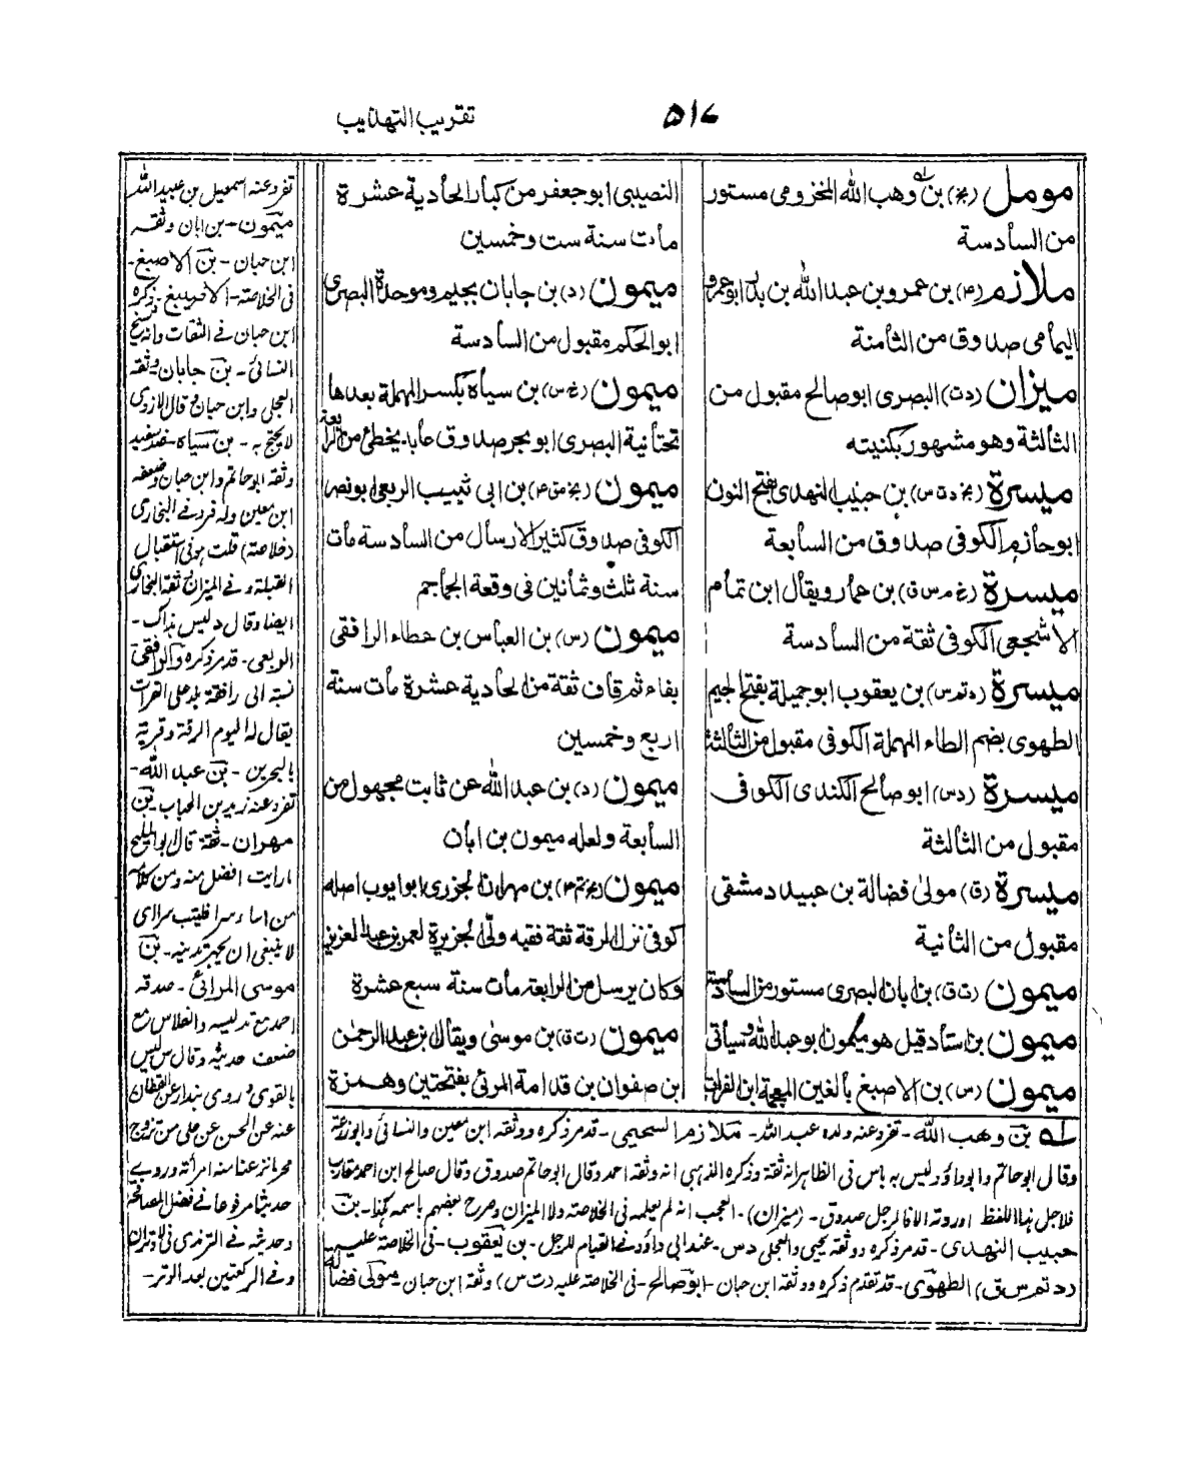 تقریب التهذیب
۵۱۷
مومل (بخ) بن وهب الله المخزومی مستور
من السادسة
ملازم (۴) بن عمرو بن عبد الله بن بدر ابو عمرو
الیمامی صدوق من الثامنة
میزان (دت) البصری ابو صالح مقبول من
الثالثة وهو مشهور بکنیته
میسرة (بخ دت س) بن حبیب النهدی بفتح النون
ابو حازم الکوفی صدوق من السابعة
میسرة (خ م س ق) بن عمار ویقال ابن تمام
الاشجعی الکوفی ثقة من السادسة
میسرة (د تم س) بن یعقوب ابو جمیلة بفتح الجیم
الطهوی بضم الطاء المهملة الکوفی مقبول من الثالثة
میسرة (دس) ابو صالح الکندی الکوفی
مقبول من الثالثة
میسرة (ق) مولیٰ فضالة بن عبید دمشقی
مقبول من الثانیة
میمون (ت ق) بن ابان البصری مستور من السادسة
میمون بن استاد قیل هو میمون ابو عبد الله وسیأتی
میمون (س) بن الاصبغ بالغین المعجمة ابن الفرات
النصیبی ابو جعفر من کبار الحادیة عشرة
مات سنة ست وخمسین
میمون (د) بن جابان بجیم وموحدة البصری
ابو الحکم مقبول من السادسة
میمون (خ س) بن سیاه بکسر المهملة بعدها
تحتانیة البصری ابو بحر صدوق عابد یخطئ من الرابعة
میمون (بخ مق ۴) بن ابی شبیب الربعی ابو نصر
الکوفی صدوق کثیر الارسال من السادسة مات
سنة ثلث وثمانین فی وقعة الجماجم
میمون (س) بن العباس بن عطاء الرافقی
بفاء ثم قاف ثقة من الحادیة عشرة مات سنة
اربع وخمسین
میمون (د) بن عبد الله عن ثابت مجهول من
السابعة ولعله میمون بن ابان
میمون (بخ م ۴) بن مهران الجزری ابو ایوب اصله
کوفی نزل الرقة ثقة فقیه ولّی الجزیرة لعمر بن عبد العزیز
وکان یرسل من الرابعة مات سنة سبع عشرة
میمون (ت ق) بن موسیٰ ویقال ابن عبد الرحمٰن
ابن صفوان بن قدامة المرئی بفتحتین وهمزة
له بن وهب الله - تفرد عنه ولده عبد الله - ملازم السحیمی - قد مر ذکره ووثقه ابن معین والنسائی وابو زرعة
وقال ابو حاتم وابو داؤد لیس به باس فی الظاهر انه ثقة وذکره الذهبی انه وثقه احمد وقال ابو حاتم صدوق وقال صالح ابن احمد مقارب
فلاجل هذا اللفظ اوردته الا فالرجل صدوق - (میزان) - العجب انه لم یعلمه فی الخلاصة ولا المیزان وصرح بعضهم باسمه هکذا - بن
حبیب النهدی - قد مر ذکره ووثقه یحیی والعجلی دس - عند ابی داؤد فی القیام للرجل - بن یعقوب - فی الخلاصة علیه
(د تم س ق) الطهوی - قد تقدم ذکره ووثقه ابن حبان - ابو صالح - فی الخلاصة علیه (ت س) وثقه ابن حبان - مولی فضالة
تفرد عنه اسمعیل بن عبید الله
میمون - بن ابان وثقه
ابن حبان - بن الاصبغ -
فی الخلاصة - ذکره
ابن حبان فی الثقات
النسائی - بن جابان وثقه
العجلی وابن حبان وقال الازدی
لا یحتج به - بن سیاه -
وثقه ابو حاتم وابن حبان وضعفه
ابن معین وله فرد فی البخاری
(خلاصة) قلت هو فی استقبال
القبلة وفی المیزان وثقه البخاری
ایضا وقال د لیس بذاک -
الربعی - قد مر ذکره والرافقی
نسبة الی رافقة بلد علی الفرات
یقال له الیوم الرقة وقریة
بالبحرین - بن عبد الله -
تفرد عنه زید بن الحباب - بن
مهران - ثقة قال ابو الملیح
ما رایت افضل منه ومن کلامه
من اساء سرا فلیتب سرا
لا ینبغی ان - بن
موسی المرائی - صدقه
احمد مع تدلیسه والفلاس مع
ضعف حدیثه وقال س لیس
بالقوی وروی بندار عن القطان
عنه عن الحسن عن علی من تزوج
امرأة وروی
حدیثا مرفوعا فی فضل المصافحة
وحدیثه فی الترمذی فی الوتر
وفی الرکعتین بعد الوتر -